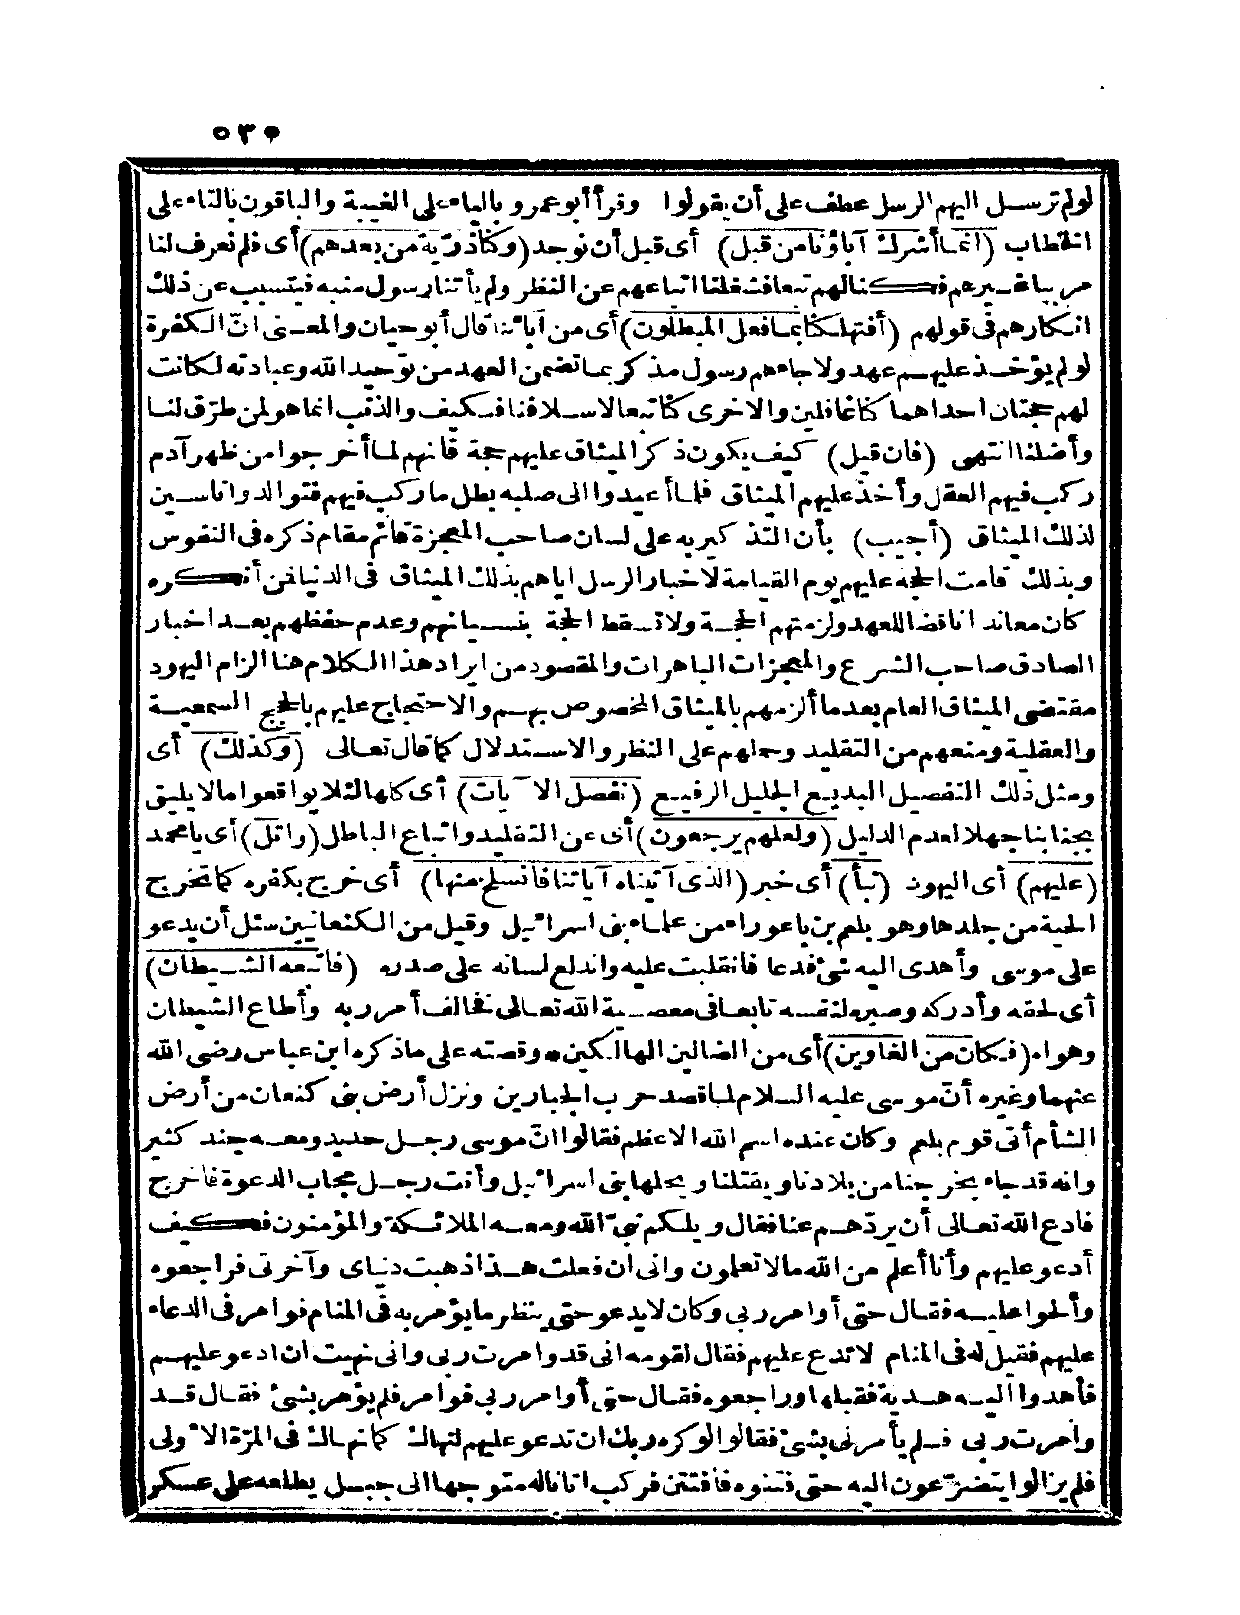 ٥٣٥
لو لم ترسل اليهم الرسل عطف على أن يقولوا وقرأ أبو عمرو بالياء على الغيبة والباقون بالتاء على
الخطاب (انما أشرك آباؤنا من قبل) أى قبل أن نوجد (وكنا ذرّية من بعدهم) أى فلم نعرف لنا
مربيا غيرهم فكنا لهم تبعا فشغلنا اتباعهم عن النظر ولم يأتنا رسول منبه فيتسبب عن ذلك
انكارهم فى قولهم (أفتهلكنا بما فعل المبطلون) أى من آبائنا قال أبو حيان والمعنى انّ الكفرة
لو لم يؤخذ عليهم عهد ولا جاءهم رسول مذكر بما تضمن العهد من توحيد الله وعبادته لكانت
لهم حجتان احداهما كنا غافلين والاخرى كنا تبعا لاسلافنا فكيف والذنب انما هو لمن طرّق لنا
وأضلنا انتهى (فان قيل) كيف يكون ذكر الميثاق عليهم حجة فانهم لما أخرجوا من ظهر آدم
ركب فيهم العقل وأخذ عليهم الميثاق فلما أعيدوا الى صلبه بطل ما ركب فيهم فتوالدوا ناسين
لذلك الميثاق (أجيب) بأن التذكير به على لسان صاحب المعجزة قائم مقام ذكره فى النفوس
وبذلك قامت الحجة عليهم يوم القيامة لاخبار الرسل اياهم بذلك الميثاق فى الدنيا فمن أنكره
كان معاندا ناقضا للعهد ولزمتهم الحجة ولا تسقط الحجة بنسيانهم وعدم حفظهم بعد اخبار
الصادق صاحب الشرع والمعجزات الباهرات والمقصود من ايراد هذا الكلام هنا الزام اليهود
مقتضى الميثاق العام بعد ما ألزمهم بالميثاق المخصوص بهم والاحتجاج عليهم بالحجج السمعية
والعقلية ومنعهم من التقليد وحملهم على النظر والاستدلال كما قال تعالى (وكذلك) أى
ومثل ذلك التفصيل البديع الجليل الرفيع (نفصل الآيات) أى كلها لئلا يواقعوا ما لا يليق
بجنابنا جهلا لعدم الدليل (ولعلهم يرجعون) أى عن التقليد واتباع الباطل (واتل) أى يا محمد
(عليهم) أى اليهود (نبأ) أى خبر (الذى آتيناه آياتنا فانسلخ منها) أى خرج بكفره كما تخرج
الحية من جلدها وهو بلعم بن باعوراء من علماء بنى اسرائيل وقيل من الكنعانيين سئل أن يدعو
على موسى وأهدى اليه شئ فدعا فانقلبت عليه واندلع لسانه على صدره (فأتبعه الشيطان)
أى لحقه وأدركه وصيره لنفسه تابعا فى معصية الله تعالى فخالف أمر ربه وأطاع الشيطان
وهواه (فكان من الغاوين) أى من الضالين الهالكين • وقصته على ما ذكره ابن عباس رضى الله
عنهما وغيره أنّ موسى عليه السلام لما قصد حرب الجبارين ونزل أرض بنى كنعان من أرض
الشأم أتى قوم بلعم وكان عنده اسم الله الاعظم فقالوا انّ موسى رجل حديد ومعه جند كثير
وانه قد جاء يخرجنا من بلادنا ويقتلنا ويحلها بنى اسرائيل وأنت رجل مجاب الدعوة فاخرج
فادع الله تعالى أن يردّهم عنا فقال ويلكم نبىّ الله ومعه الملائكة والمؤمنون فكيف
أدعو عليهم وأنا أعلم من الله ما لا تعلمون وانى ان فعلت هذا ذهبت دنياى وآخرتى فراجعوه
وألحوا عليه فقال حتى أوامر ربى وكان لا يدعو حتى ينظر ما يؤمر به فى المنام فوامر فى الدعاء
عليهم فقيل له فى المنام لا تدع عليهم فقال لقومه انى قد وامرت ربى وانى نهيت ان ادعو عليهم
فأهدوا اليه هدية فقبلها وراجعوه فقال حتى أوامر ربى فوامر فلم يؤمر بشئ فقال قد
وامرت ربى فلم يأمرنى بشئ فقالوا لو كره ربك ان تدعو عليهم لنهاك كما نهاك فى المرّة الاولى
فلم يزالوا يتضرّعون اليه حتى فتنوه فافتتن فركب اتانا له متوجها الى جبل يطلعه على عسكر